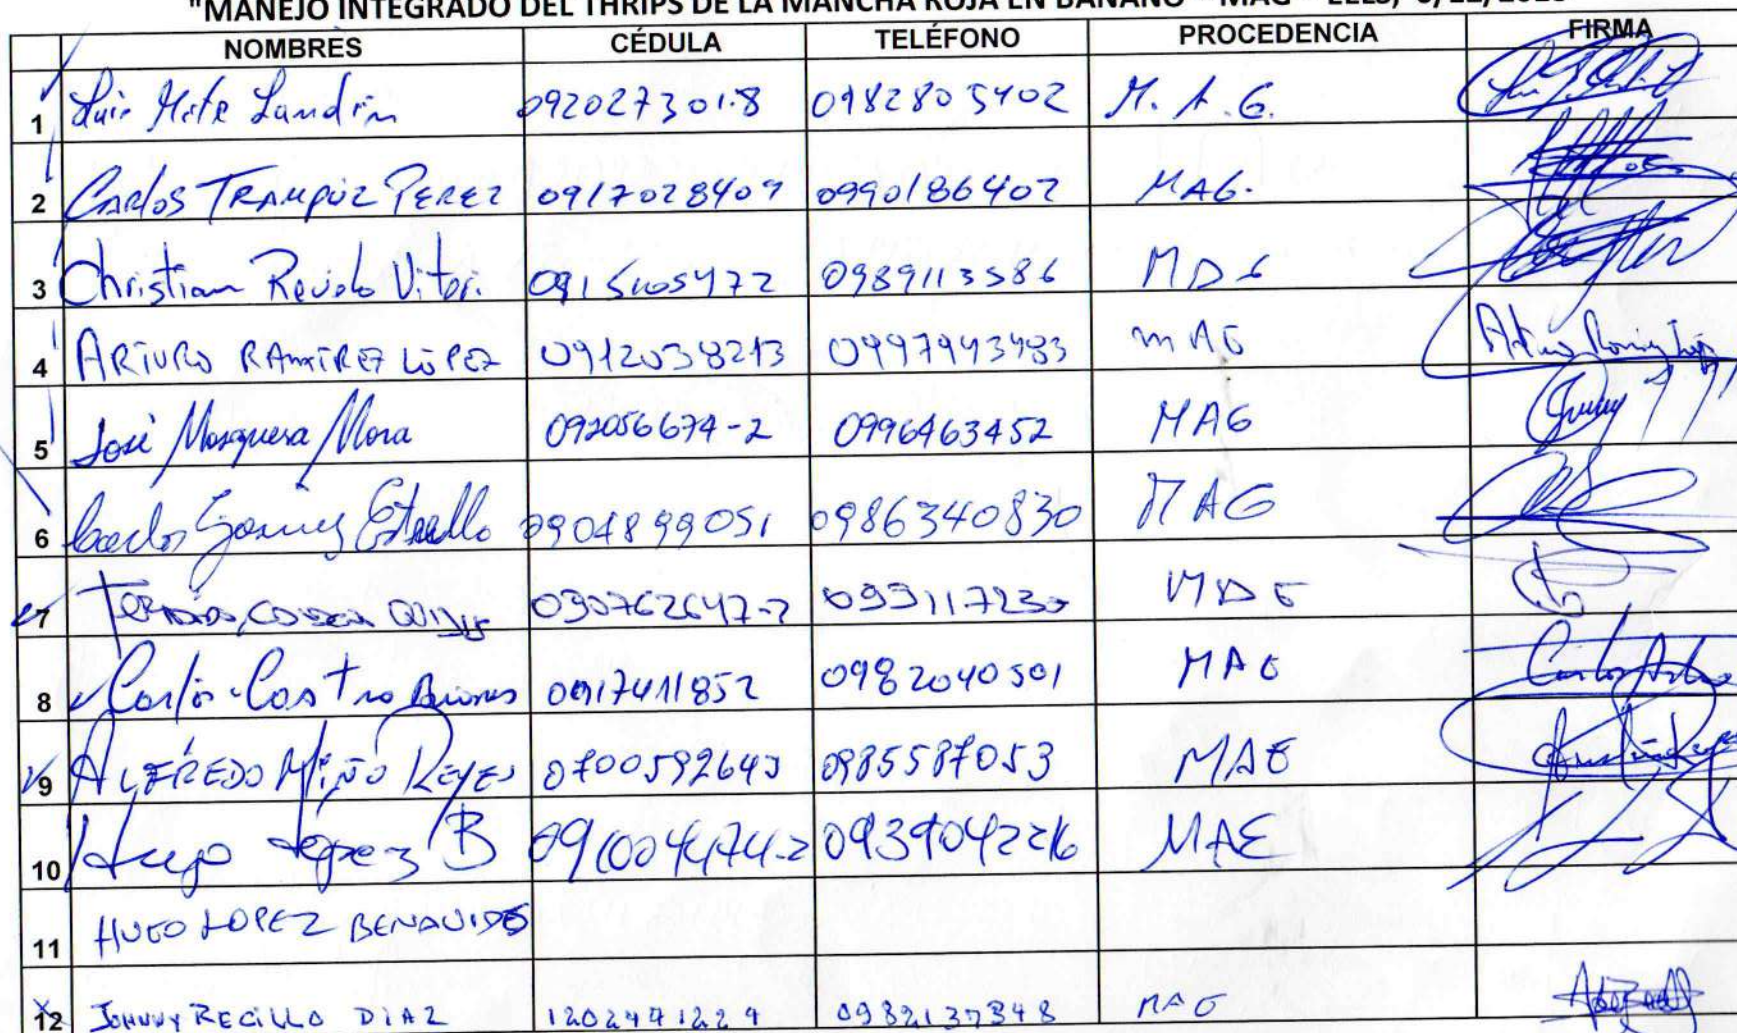 "MANEJO INTEGRADO DEL THRIPS DE LA MANCHA ROJA EN BANANO - MAG - EELS,
NOMBRES CÉDULA TELÉFONO PROCEDENCIA FIRMA
1 Luis Mite Landin 092027301-8 0982805402 M.A.G.
2 CARLOS TRAMPUZ PEREZ 0917028409 0990186402 MAG.
3 Christian 0989113586
4 ARTURO RAMIREZ LÓPEZ 0912038213 0997943483 MAG
5 José Mosquera Mora 092056674-2 0996463452 MAG
6 Carlos Estrella 0904899051 0986340830 MAG
7
8 Carlos Castro Briones 0917411852 0982040501 MAG
9 ALFREDO MIÑO REYES 0700592643 0985587053 MAG
10 Hugo López B MAG
11 HUGO LOPEZ BENAVIDES
12 JOHNNY RECILLO DIAZ 0982137348 MAG